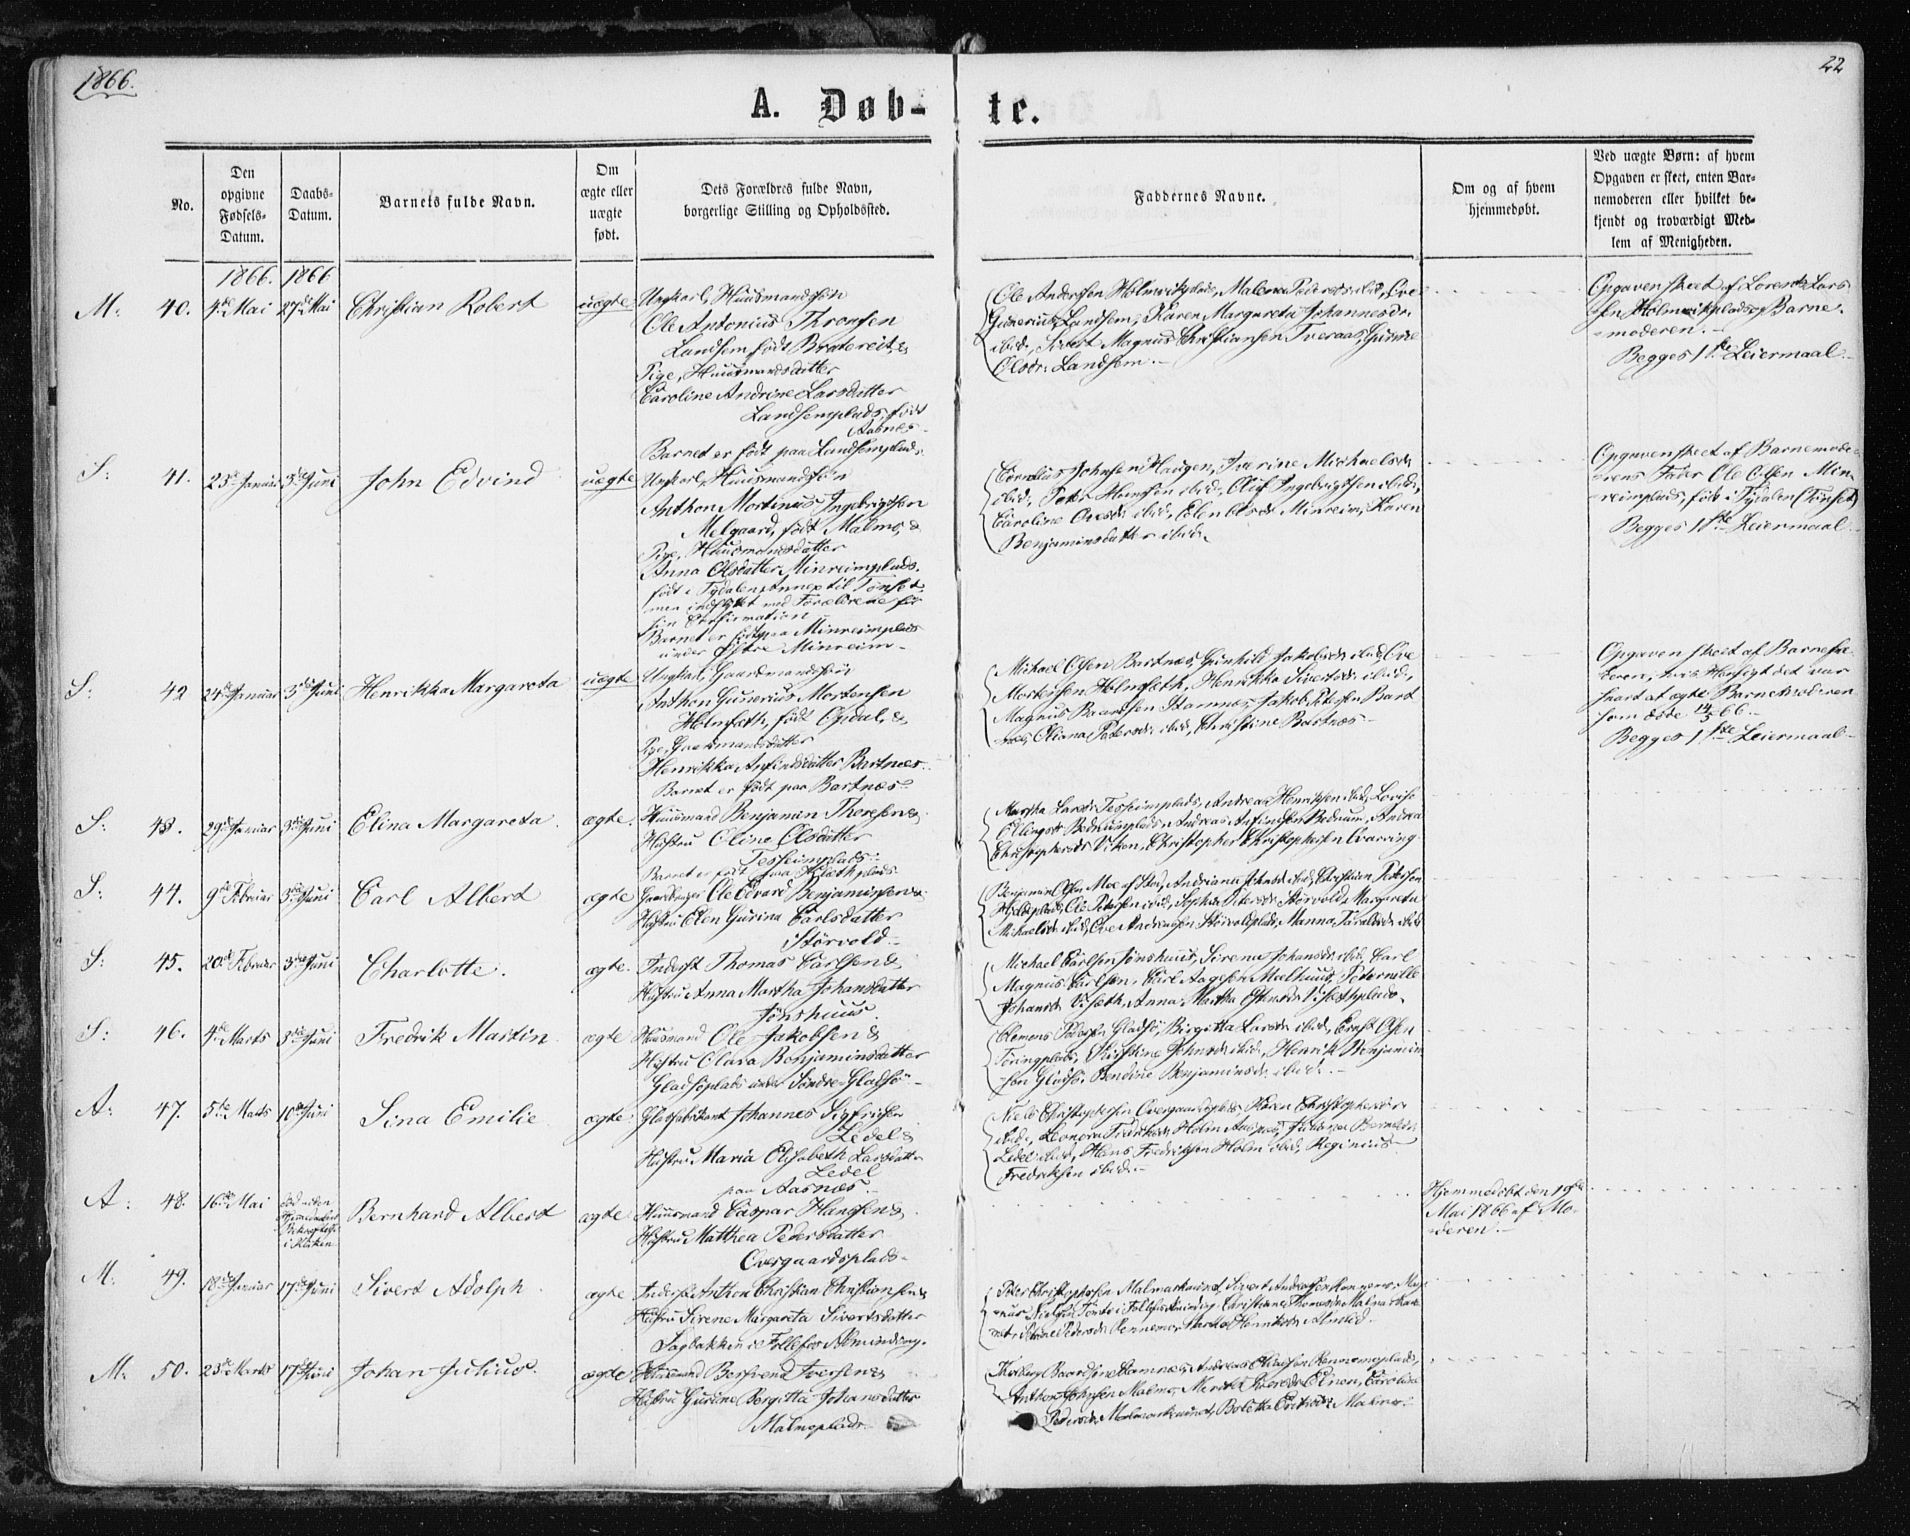 1866.
22
A. Døb-
te.
No.
Den
opgivne
Fødsels-
Datum.
Daabs-
Datum.
Barnets fulde Navn.
Om
ægte eller
uægte
født.
Dets Forældres fulde Navn,
borgerlige Stilling og Opholdssted.
Faddernes Navne.
Om og af hvem
hjemmedøbt.
Ved uægte Børn: af hvem
Opgaven er skeet, enten Bar-
nemoderen eller hvilket be-
kjendt og troværdigt Med-
lem af Menigheden.
1866. 1866
M: 40. 4de Mai 27de Mai Christian Robert uægte
Ungkarl, Huusmandssøn
Ole Antonius Thronsen
Landsem født Bratereit, &
Pige, Huusmandsdatter
Caroline Andrine Larsdatter
Landsemplads, født
Aasnæs.
Barnet er født paa Landsemplads.
Ole Andersen Holmvikplads, Malene Pedersdr. ibid., Ove
Gunerius Landsem, Karen Margareta Johannesdr.
ibid., Sivert Magnus Christiansen Tveraas, Gurine
Olsdr. Landsem.
Opgaven skeet af Lorents Lars
sen Holmvikplads og Barne-
moderen.
Begges 1ste Leiermaal
S: 41. 23de Januar 3die Juni John Edvind uægte
Ungkarl, Huusmandssøn
Anthon Martinus Ingebrigtsen
Melgaard, født Malmo, &
Pige, Huusmandsdatter
Anna Olsdatter Minreimplads,
født i Tydalen Annex til Tønset
men indflyttet med Forældrene før
sin Confirmation
Barnet er født paa Minreimplads
under Østre Minreim
Cornelius Johnsen Haugen, Iverine Michaelsdr.
ibid., Peter Hansen ibid., Oluf Ingebrigtsen ibid.,
Caroline Ovesdr. ibid., Elen Olsdr. Minreim, Karen
Benjaminsdatter ibid.
Opgaven skeet af Barnemode-
rens Fader Ole Olsen Min-
reimplads, født i Tydalen (Tønset)
Begges 1ste Leiermaal
S: 42 24de Januar 3die Juni Henrikka Margareta uægte
Ungkarl, Gaardmandssøn
Anthon Gunerius Mortensen
Holmsæth, født Opdal, &
Pige, Gaardmandsdatter
Henrikka Anfindsdatter Bartnæs.
Barnet er født paa Bartnæs.
Michael Olsen Bartnæs, Gunhild Jakobsdr. ibid., Ove
Mortensen Holmsæth, Henrikka Sivertsdr. ibid.,
Magnus Baardsen Stamnæs, Jakob Petersen Bart
næs, Oliana Pedersdr. ibid., Christine Bartnæs
Opgaven skeet af Barnefa-
deren, hvis Hensigt det var
snart at ægte Barnemoderen
som døde 14/5 66.
Begges 1ste Leiermaal
S: 43. 29de Januar 3die Juni Elina Margareta ægte.
Huusmand Benjamin Theresen &
Hustru Oline Olsdatter
Tessemplads.
Barnet er født paa plads
Martha Larsdr. Tessemplads, Andreas Henriksen ibid., Lovise
Bodrumplads, Andreas Anfindsen Bodrum, Andrea
Christophersdr. Viken, Christopher Christophersen Qvarving
S: 44. 9de Februar 3die Juni Carl Albert ægte
Gaardbruger Ole Edvard Benjaminsen &
Hustru Elen Gurina Carlsdatter
Størvold.
Benjamin Olsen Moe af Stod, Andriana Johnsdr. ibid., Christian Petersen
plads, Ole Petersen ibid., Sophie Petersdr. Størvold, Margreta
Michaelsdr. ibid., Ove Andreasen Størvoldplads, Hanna Toraldsdr. ibid.
S: 45. 20de Februar 3die Juni Charlotte. ægte.
Inderst Thomas Carlsen &
Hustru Anna Martha Johansdatter
Jønshuus.
Michael Carlsen Jønshuus, Sirena Johansdr. ibid., Carl
Magnus Carlsen, Carl Aagesen Melhuus, Peternille
Johansdr. Visæth, Anna Martha Estensdr. Visæthplads.
S: 46. 4de Marts 3die Juni Fredrik Martin ægte
Huusmand Ole Jakobsen &
Hustru Clara Benjaminsdatter
Gladsøplads under Søndre Gladsø
Clemens Pedersen Gladsø, Birgitta Larsdr. ibid., Ernst Olsen
Tøringplads, Christine Johnsdr. ibid., Henrik Benjamin
sen Gladsø, Bendine Benjaminsdr. ibid.
A: 47. 5te Marts 10de Juni Sina Emilie ægte
Johannes Sigfridsen
Ledel &
Hustru Maria Elisabeth Larsdatter
Ledel
paa Aasnæs.
Niels Christophersen Overgaardsplads, Karen Christophersdr.
ibid., Leonora Fredriksdr. Holm Aasnæs, Johannes Berndtsen
Ledel ibid., Hans Fredriksen Holm ibid., Reginius
Fredriksen ibid.
A: 48. 16de Mai
Død uden
i Kirken
Bernhard Albert ægte
Huusmand Caspar Hansen &
Hustru Matthea Pedersdatter
Overgaardsplads
Hjemmedøbt den 19de
Mai 1866 af Mo-
deren.
M: 49. 18de Januar 17de Juni Sivert Adolph ægte
Inderst Anthon Christian Christiansen &
Hustru Sirene Margareta Sivertsdatter
Sagbakken i Follefos Alminding.
Peter Christophersen Malmarkmoet, Sivert Andreassen Rennemo, Mag
nus Nielsen Tomte i Follefos Alminding, Christiane Thomasdr. Malmarkmo
et, Petersdr. Rennemo, Martha Henriksdr. Almlid.
M: 50. 23de Marts 17de Juni Johan Julius. ægte
Huusmand Bersvend Iversen &
Hustru Gurine Bergitta Johansdatter
Malmoplads
Baardsen Stamnæs, Andreas Olausen Rennemoplads,
Anthon Johnsen Malmo, Merethe Iversdr. Elnen, Carolina
Pedersdr. Malmarkmoet, Boletta Malmo.